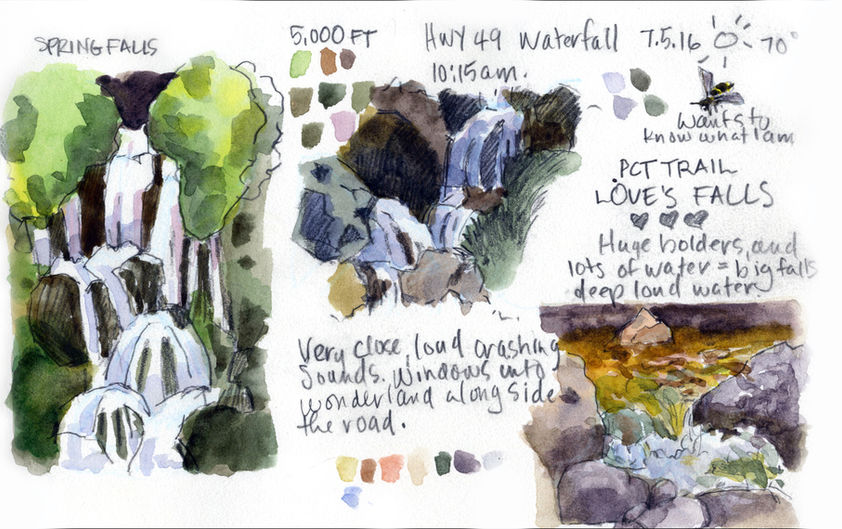 SPRING FALLS
5,000 FT
HWY 49 Waterfall 7.5.16 70°
10:15am.
Wants to
know what I am
PCT TRAIL
LOVE'S FALLS
Huge bolders, and
lots of water = big falls
deep loud water.
Very close, loud crashing
Sounds. Windows into
wonderland along side
the road.